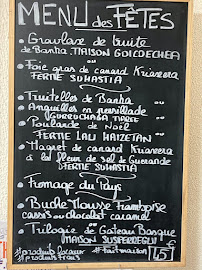 MENU des FÊTES
• Gravlax de truite
de Banka, MAISON GOICOECHEA
ou
• Foie gras de canard Kriaxera
FERME SUHASTIA
• Truitelles de Banka
ou
• Anguilles en persillade
ou
• Poularde de Noël
FERME LAU HAIZETAN
ou
• Magret de canard Kriaxera
à la fleur de sel de Guérande
FERME SUHASTIA
• Fromage du Pays
• Buche Mousse Framboise
cassis ou chocolat caramel
ou
• Trilogie de Gateau Basque
MAISON
#produits locaux #faitmaison
#produits frais